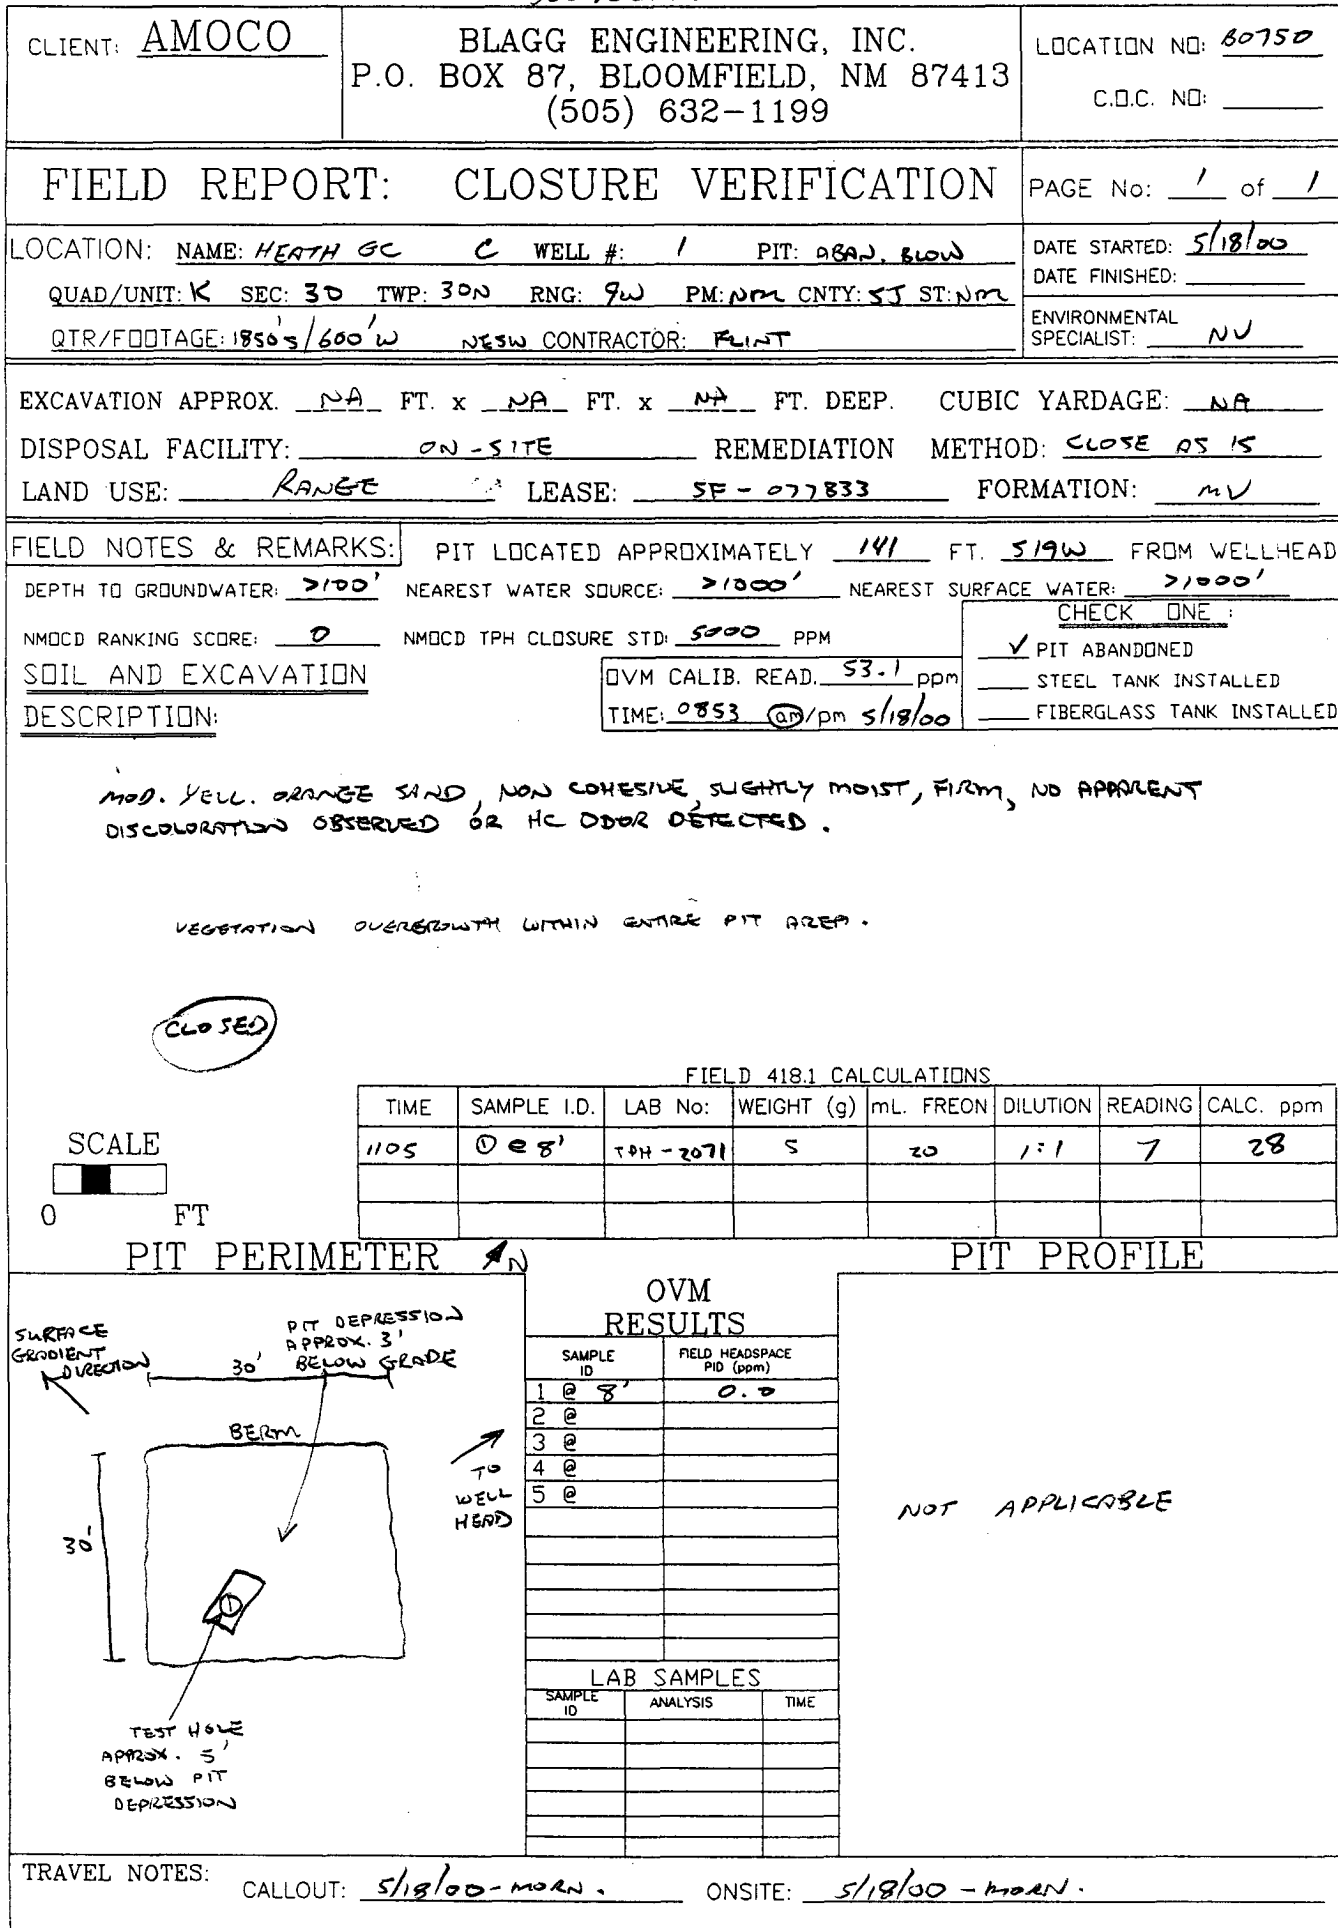 CLIENT: AMOCO
BLAGG ENGINEERING, INC.
P.O. BOX 87, BLOOMFIELD, NM 87413
(505) 632-1199
LOCATION NO: B0750
C.O.C. NO:
FIELD REPORT: CLOSURE VERIFICATION
PAGE No: 1 of 1
LOCATION: NAME: HEATH GC C WELL #: 1 PIT: ABAN. BLOW
QUAD/UNIT: K SEC: 30 TWP: 30N RNG: 9W PM: NM CNTY: SJ ST: NM
QTR/FOOTAGE: 1850'S/600'W NESW CONTRACTOR: FLINT
DATE STARTED: 5/18/00
DATE FINISHED:
ENVIRONMENTAL
SPECIALIST: NV
EXCAVATION APPROX. NA FT. x NA FT. x NA FT. DEEP. CUBIC YARDAGE: NA
DISPOSAL FACILITY: ON-SITE REMEDIATION METHOD: CLOSE AS IS
LAND USE: RANGE LEASE: SF-077833 FORMATION: MV
FIELD NOTES & REMARKS: PIT LOCATED APPROXIMATELY 141 FT. S19W FROM WELLHEAD
DEPTH TO GROUNDWATER: >100' NEAREST WATER SOURCE: >1000' NEAREST SURFACE WATER: >1000'
NMOCD RANKING SCORE: 0 NMOCD TPH CLOSURE STD: 5000 PPM
CHECK ONE :
✓ PIT ABANDONED
STEEL TANK INSTALLED
FIBERGLASS TANK INSTALLED
SOIL AND EXCAVATION
DESCRIPTION:
OVM CALIB. READ. 53.1 ppm
TIME: 0853 am/pm 5/18/00
MOD. YELL. ORANGE SAND, NON COHESIVE, SLIGHTLY MOIST, FIRM, NO APPARENT
DISCOLORATION OBSERVED OR HC ODOR DETECTED.
VEGETATION OVERGROWTH WITHIN ENTIRE PIT AREA.
CLOSED
FIELD 418.1 CALCULATIONS
TIME SAMPLE I.D. LAB No: WEIGHT (g) mL. FREON DILUTION READING CALC. ppm
1105 ① @ 8' TPH-2071 5 20 1:1 7 28
SCALE
0 FT
PIT PERIMETER N
PIT PROFILE
SURFACE
GRADIENT
DIRECTION
PIT DEPRESSION
APPROX. 3'
BELOW GRADE
30'
BERM
30'
TO
WELL
HEAD
①
TEST HOLE
APPROX. 5'
BELOW PIT
DEPRESSION
OVM
RESULTS
SAMPLE ID FIELD HEADSPACE PID (ppm)
1 @ 8' 0.0
2 @
3 @
4 @
5 @
LAB SAMPLES
SAMPLE ID ANALYSIS TIME
NOT APPLICABLE
TRAVEL NOTES:
CALLOUT: 5/18/00-MORN. ONSITE: 5/18/00-MORN.